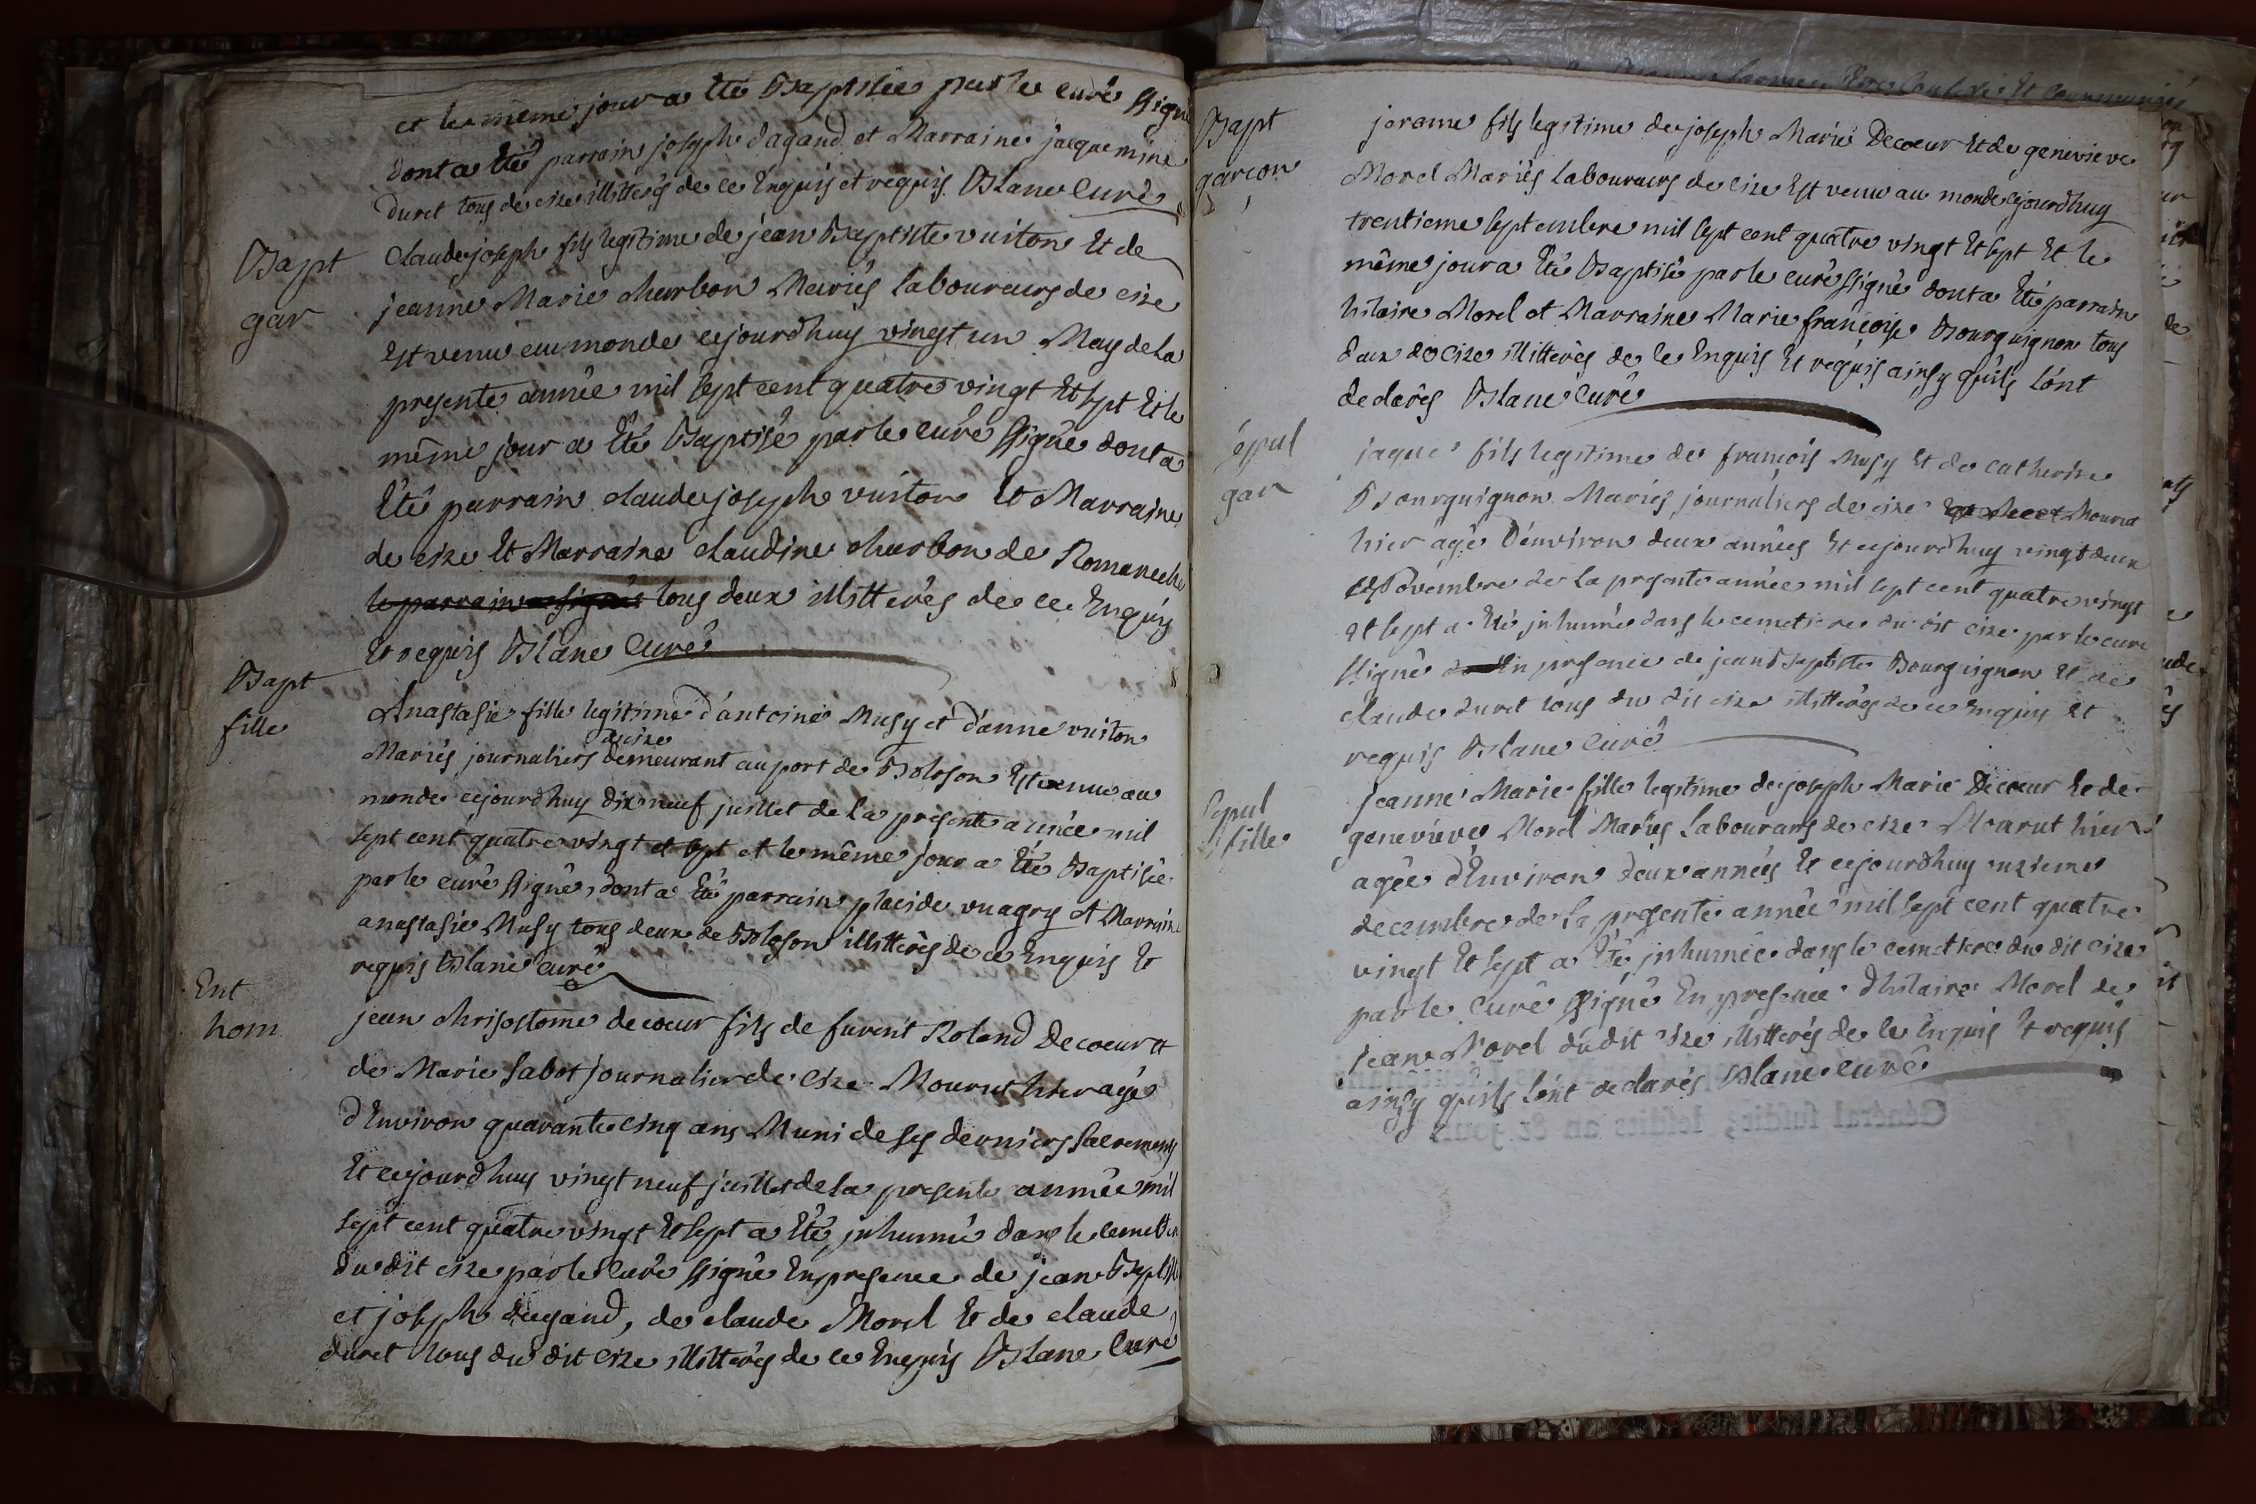 et le même jour a été Baptisée par le curé ssigné
dont a été parrain joseph dagand et Marraine jacquemine
duret tous de cize illitterés de ce Enquis et requis Blanc Curé
Bapt
gar
claude joseph fils legitime de jean Baptiste vuiton Et de
jeanne Marie charbon Mariés laboureurs de cize
Est venu au monde cejourdhuy vingt un May de la
presente année mil sept cent quatre vingt Et sept Et le
même jour a été Baptisé par le curé ssigné dont a
Eté parrain claude joseph vuiton Et Marraine
de cize Et Marraine claudine charbon de Romaneche
le parrain a signé tous deux illitterés de ce Enquis
Et requis Blanc Curé
Bapt
fille
Anastasie fille legitime d'antoine Musy et d'anne vuiton
de cize
Mariés journaliers demeurant au port de Boloson Est venue au
monde cejourdhuy dix neuf juillet de la presente année mil
sept cent quatre vingt et sept et le même jour a été Baptisée
par le curé ssigné, dont a Eté parrain placide vuagry et Marraine
anastasie Musy tous deux de Boloson illitterés de ce Enquis Et
requis Blanc curé
Ent
hom
jean chrisostome decoeur fils de furent Roland Decoeur et
de Marie Sabot journalier de Cize Mourut hier agé
d'Environ quarante cinq ans Muni de ses derniers Sacrements
Et cejourdhuy vingt neuf juillet de la presente année mil
sept cent quatre vingt Et sept a Eté inhumé dans le cemetiere
du dit cize par le Curé ssigné En presence de jean Baptiste
et joseph dagand, de claude Morel Et de claude
duret tous du dit cize illitterés de ce Enquis Blanc Curé
Bapt
garçon
jerome fils legitime de joseph Marie Decoeur Et de genevieve
Morel Mariés laboureurs de cize Est venu au monde cejourdhuy
trentieme septembre mil sept cent quatre vingt Et sept Et le
même jour a Eté Baptisé par le curé ssigné dont a Eté parrain
hilaire Morel et Marraine Marie françoise Bourguignon tous
deux de Cize illitterés de ce Enquis Et requis ainsy quils l'ont
declarés Blanc curé
sépul
gar
jaque fils legitime de françois Musy Et de catherine
Bourguignon Mariés journaliers de cize Mourut
hier agé D'environ deux années Et cejourdhuy vingt deux
Novembre de la presente année mil sept cent quatre vingt
Et sept a Eté inhumé dans le cemetiere du dit cize par le curé
ssigné En presence de jean Baptiste Bourguignon Et de
claude duret tous du dit cize illitterés de ce Enquis Et
requis Blanc Curé
Sepul
fille
jeanne Marie fille legitime de joseph Marie Decoeur Et de
genevieve Morel Mariés Laboureurs de cize Mourut hier
agée d'Environ deux années Et cejourdhuy onzieme
decembre de la presente année mil sept cent quatre
vingt Et sept a Eté inhumée dans le cemetiere du dit cize
par le Curé ssigné En presence d'hilaire Morel de
jean Morel dudit cize illitterés de ce Enquis Et requis
ainsy quils l'ont declarés Blanc curé